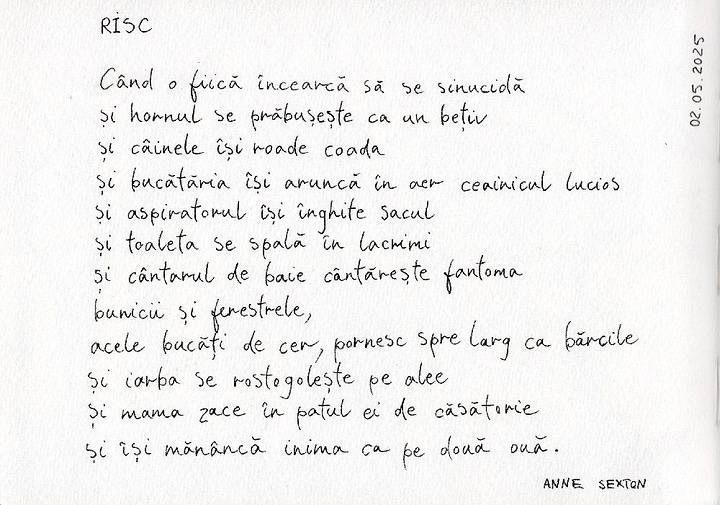 RISC
02.05.2025
Când o fiică încearcă să se sinucidă
și hornul se prăbușește ca un bețiv
și câinele își roade coada
și bucătăria își aruncă în aer ceainicul lucios
și aspiratorul își înghite sacul
și toaleta se spală în lacrimi
și cântarul de baie cântărește fantoma
bunicii și ferestrele,
acele bucăți de cer, pornesc spre larg ca bărcile
și iarba se rostogolește pe alee
și mama zace în patul ei de căsătorie
și își mănâncă inima ca pe două ouă.
ANNE SEXTON